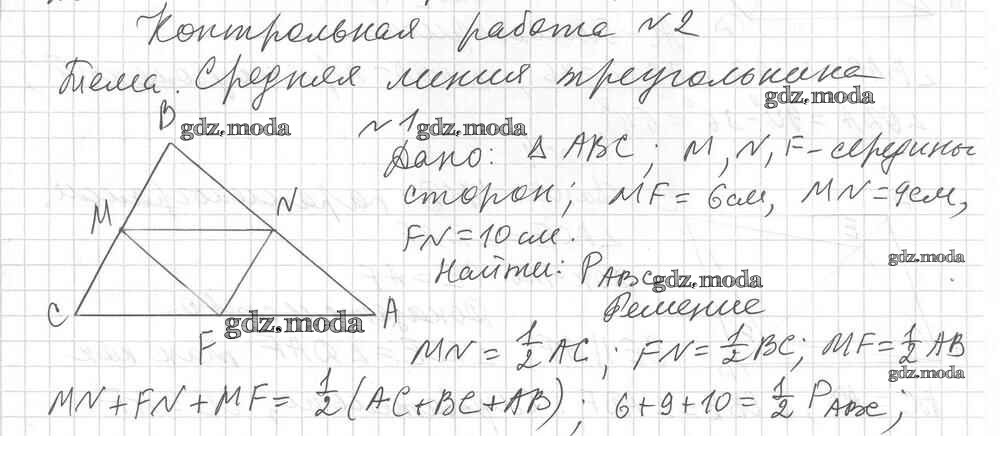 Контрольная работа №2
Тема. Средняя линия треугольника
gdz.moda
B
gdz.moda
№1
gdz.moda
Дано: Δ ABC; M, N, F - середины
сторон; MF = 6см, MN = 9см,
FN = 10 см.
Найти: P_ABC
gdz.moda
gdz.moda
M
N
C
F
A
gdz.moda
Решение
MN = 1/2 AC; FN = 1/2 BC; MF = 1/2 AB
gdz.moda
MN + FN + MF = 1/2 (AC + BC + AB); 6 + 9 + 10 = 1/2 P_ABC;